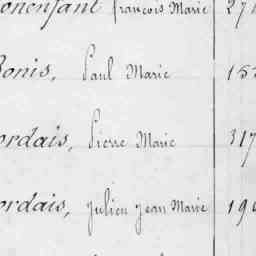 onenfant François Marie 27
Bonis, Paul Marie 15
ordais, Pierre Marie 317
ordais, Julien Jean Marie 19